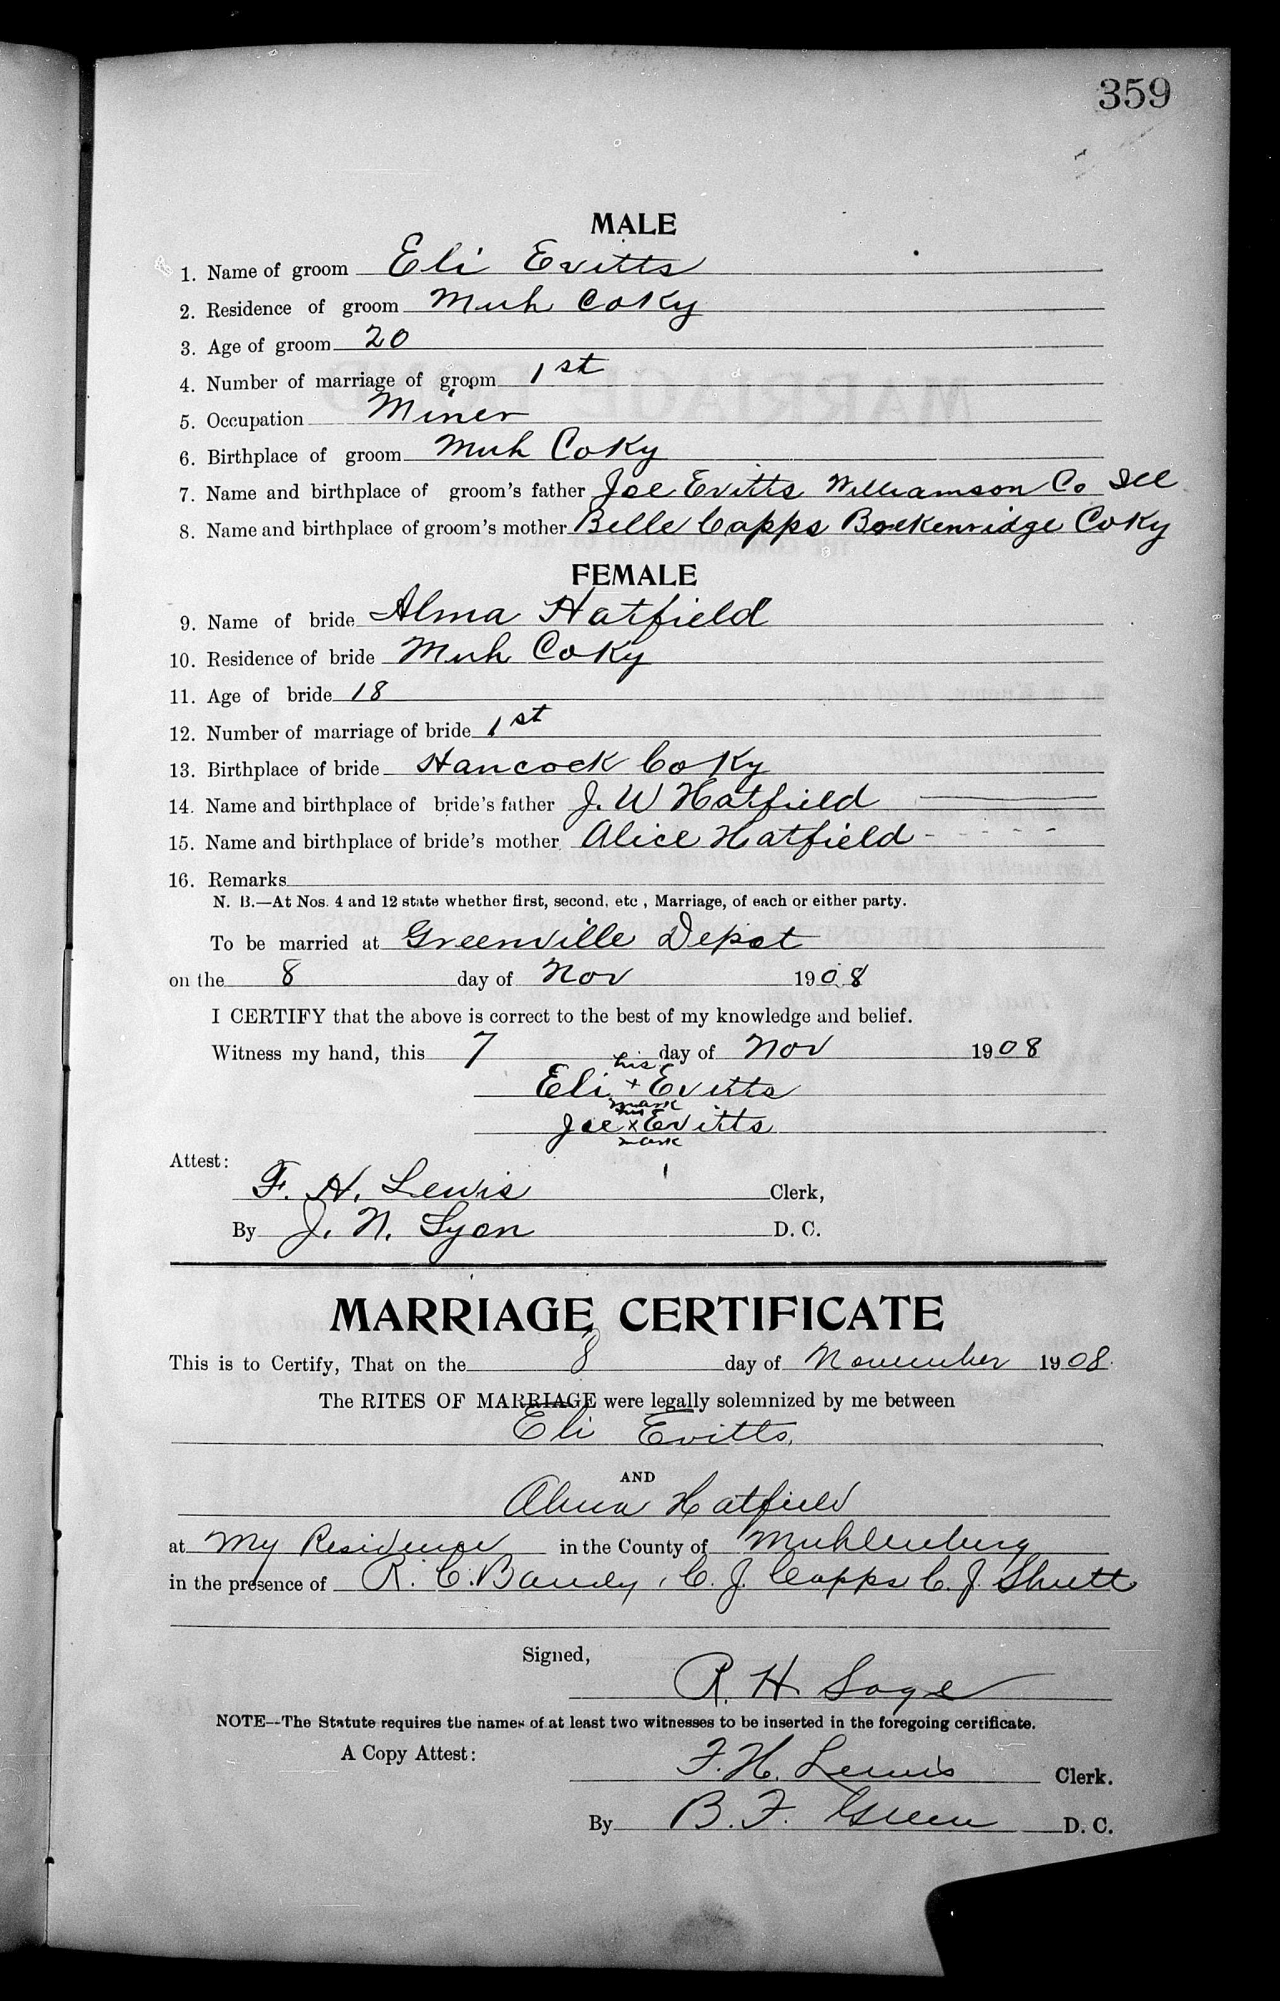 359
MALE
1. Name of groom Eli Evitts
2. Residence of groom Muh Co Ky
3. Age of groom 20
4. Number of marriage of groom 1st
5. Occupation Miner
6. Birthplace of groom Muh Co Ky
7. Name and birthplace of groom's father Joe Evitts Williamson Co Ill
8. Name and birthplace of groom's mother Belle Capps Breckenridge Co Ky
FEMALE
9. Name of bride Alma Hatfield
10. Residence of bride Muh Co Ky
11. Age of bride 18
12. Number of marriage of bride 1st
13. Birthplace of bride Hancock Co Ky
14. Name and birthplace of bride's father J. W Hatfield
15. Name and birthplace of bride's mother Alice Hatfield - - - - -
16. Remarks
N. B.—At Nos. 4 and 12 state whether first, second, etc, Marriage, of each or either party.
To be married at Greenville Depot
on the 8 day of Nov 1908
I CERTIFY that the above is correct to the best of my knowledge and belief.
Witness my hand, this 7 day of Nov 1908
his
Eli + Evitts
mark
his
Joe x Evitts
mark
Attest:
F. H. Lewis Clerk,
By J. N. Lyon D. C.
MARRIAGE CERTIFICATE
This is to Certify, That on the 8 day of November 1908.
The RITES OF MARRIAGE were legally solemnized by me between
Eli Evitts.
AND
Alma Hatfield
at My Residence in the County of Muhlenberg
in the presence of R. C. Bandy, C. J. Capps C. J. Shutt
Signed,
R. H. Sage
NOTE--The Statute requires the names of at least two witnesses to be inserted in the foregoing certificate.
A Copy Attest:
F. H. Lewis Clerk.
By B. F. Green D. C.